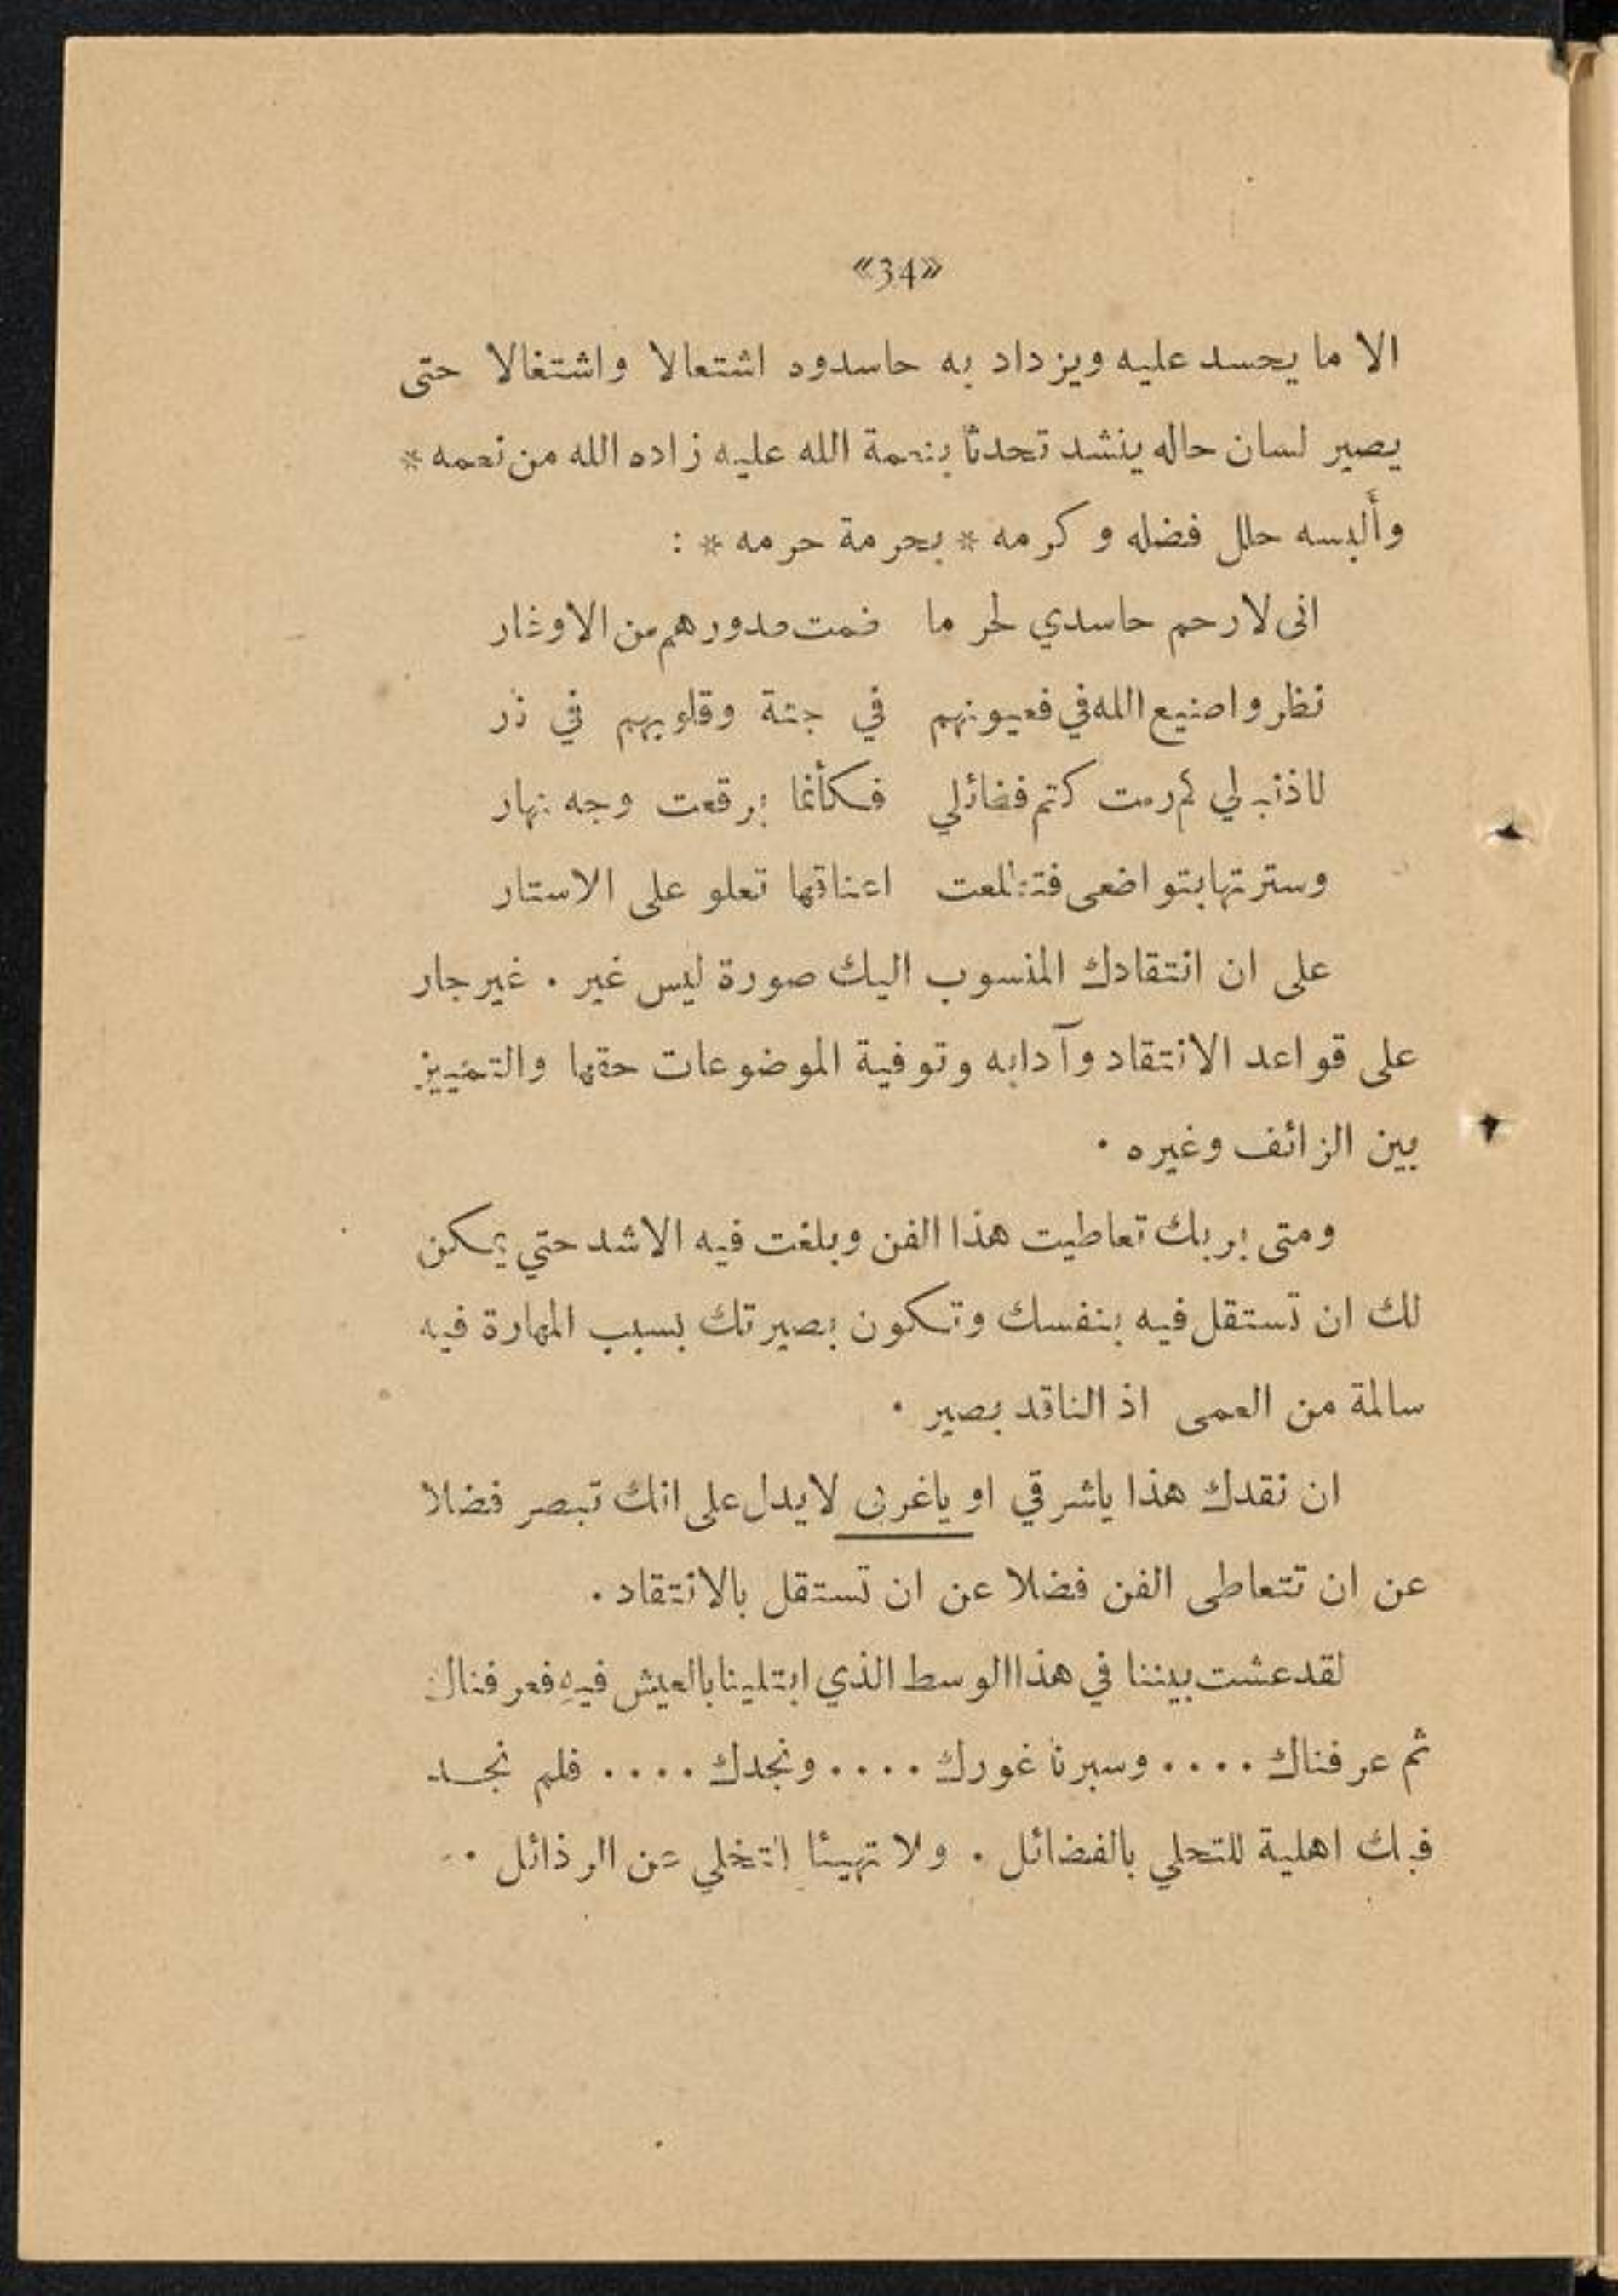 «34»
الا ما يحسد عليه ويزداد به حاسدوه اشتعالا واشتغالا حتى
يصير لسان حاله ينشد تحدثا بنعمة الله عليه زاده الله من نعمه *
وألبسه حلل فضله وكرمه * بحرمة حرمه * :
انى لارحم حاسدي لحر ما ضمت صدورهم من الاوغار
نظروا صنيع الله في فعيونهم في جنة وقلوبهم في نر
لا ذنب لي كم رمت كتم فضائلي فكأنما برقعت وجه نهار
وسترتها بتواضعى فتطلعت اعناقها تعلو على الاستار
على ان انتقادك المنسوب اليك صورة ليس غير . غير جار
على قواعد الانتقاد وآدابه وتوفية الموضوعات حقها والتمييز
بين الزائف وغيره .
ومتى بربك تعاطيت هذا الفن وبلغت فيه الاشد حتي يمكن
لك ان تستقل فيه بنفسك وتكون بصيرتك بسبب المهارة فيه
سالمة من العمى اذ الناقد بصير .
ان نقدك هذا ياشرقي او ياغربى لايدل على انك تبصر فضلا
عن ان تتعاطى الفن فضلا عن ان تستقل بالانتقاد .
لقد عشت بيننا في هذا الوسط الذي ابتلينا بالعيش فيه فعرفناك
ثم عرفناك .... وسبرنا غورك .... ونجدك .... فلم نجد
فيك اهلية للتحلي بالفضائل . ولا تهيئا لتخلي عن الرذائل .